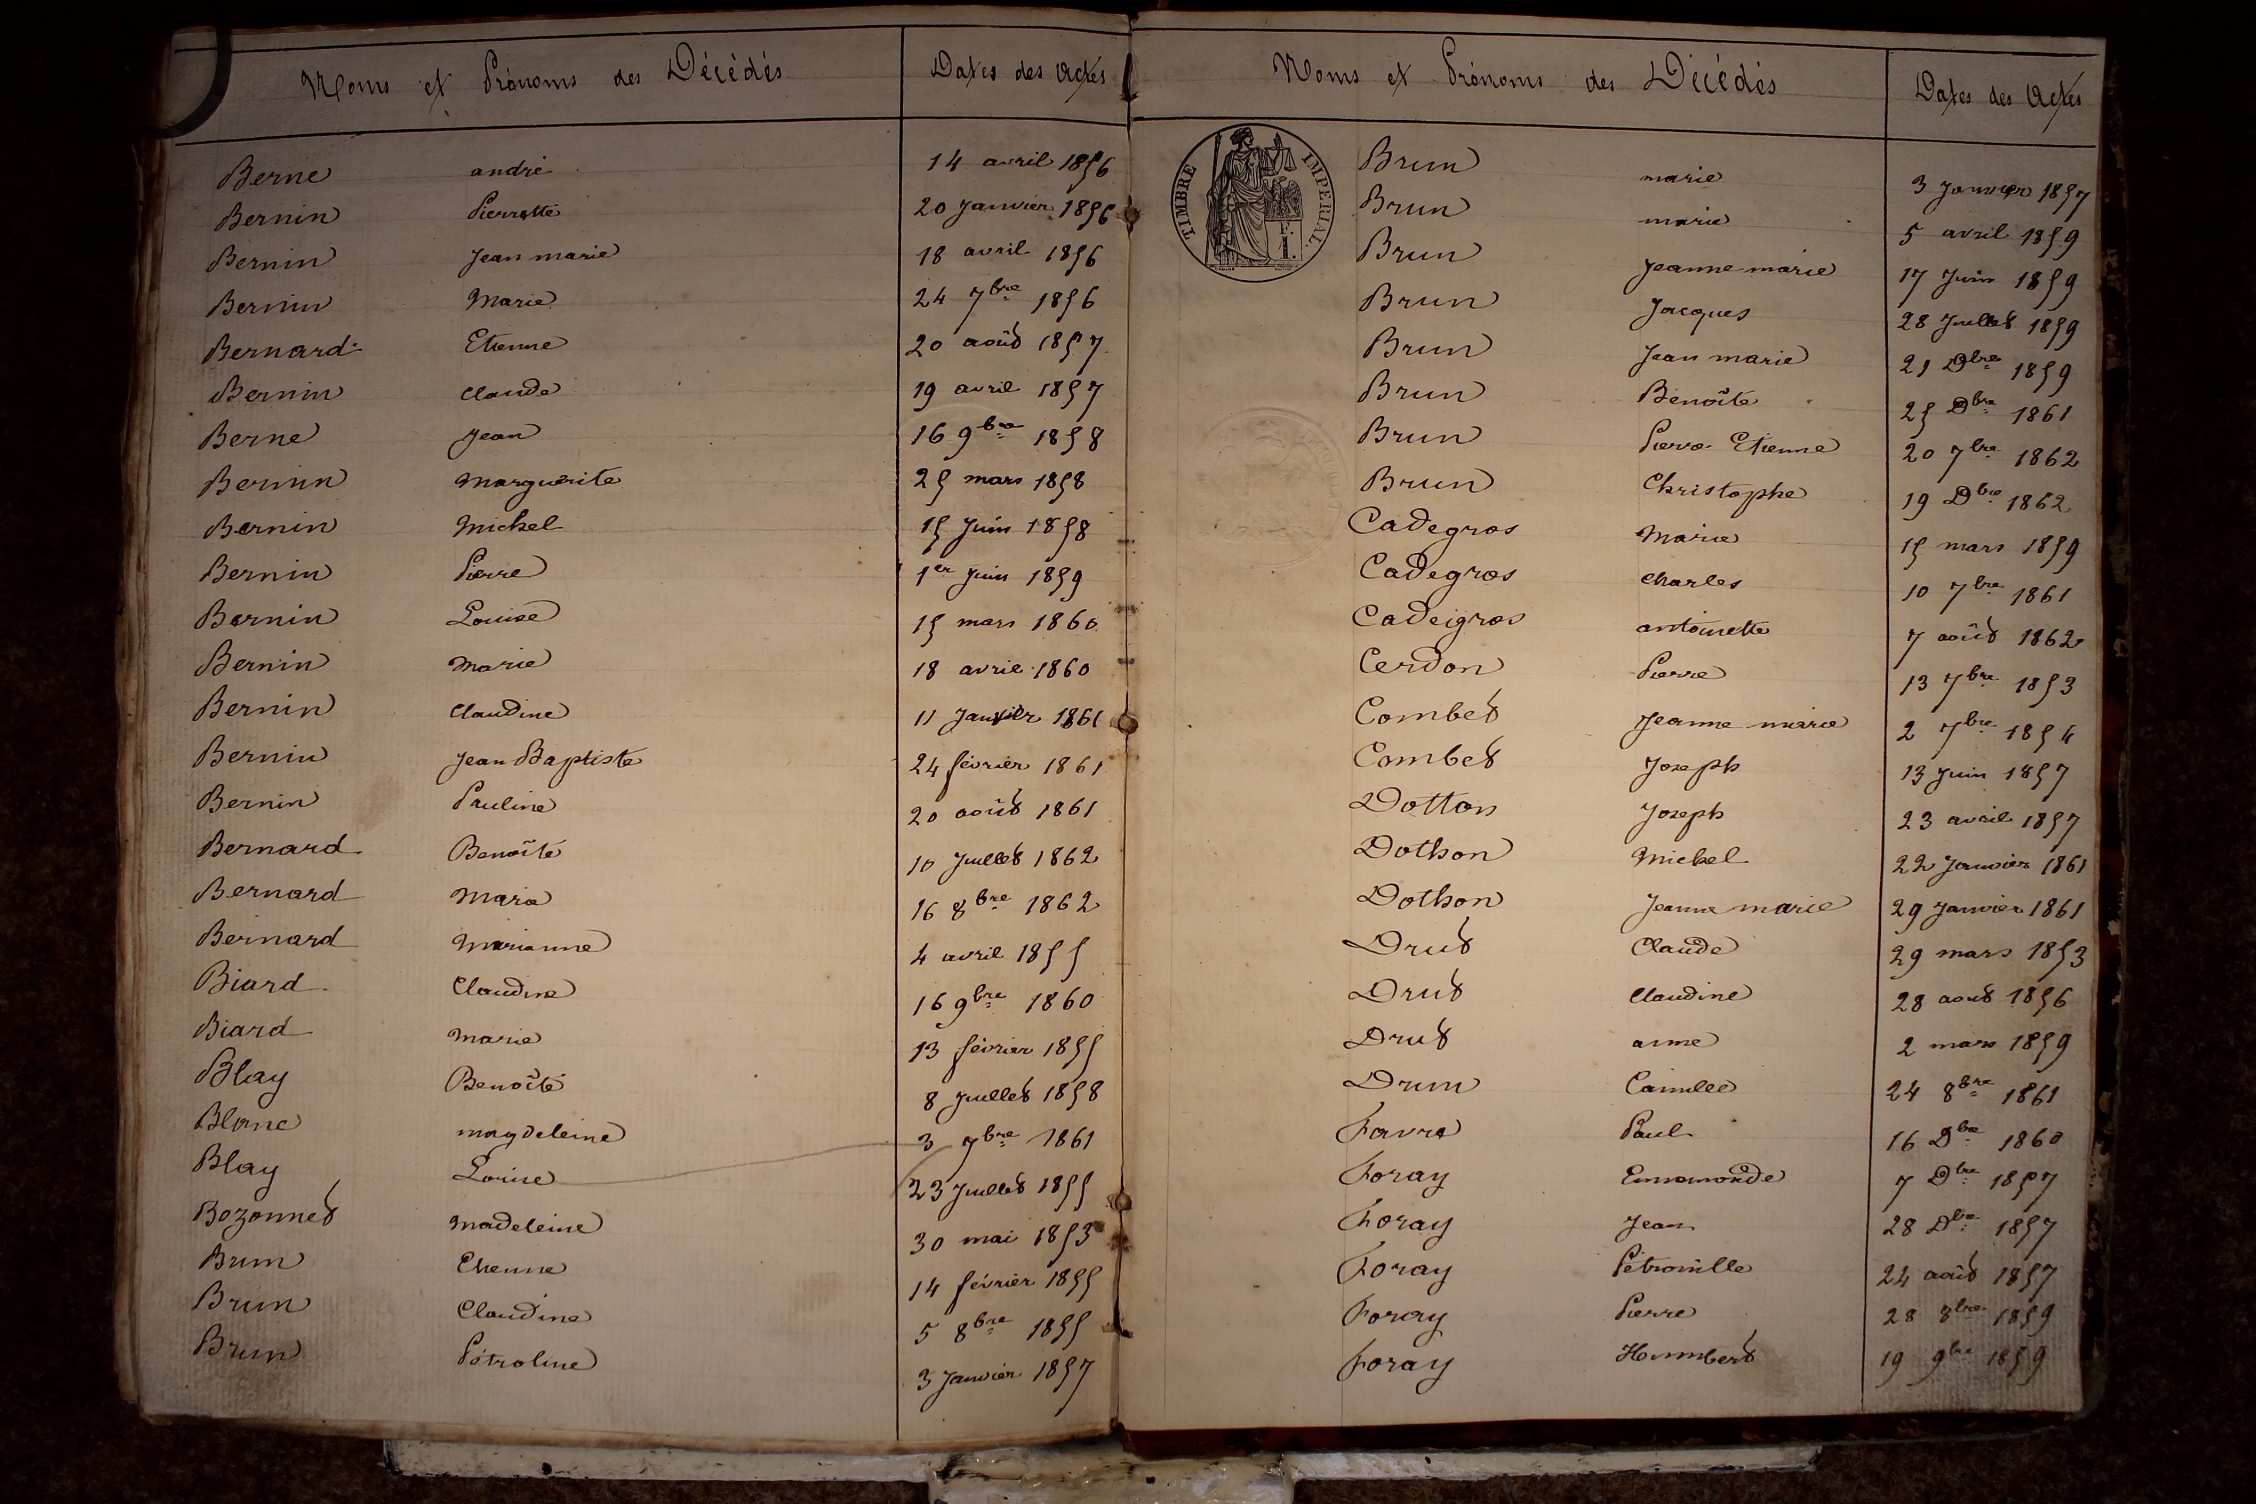 Noms et Prénoms des Décédés Dates des Actes
Berne andré 14 avril 1856
Bernin Pierrette 20 Janvier 1856
Bernin Jean marie 18 avril 1856
Bernin Marie 24 7bre 1856
Bernard Etienne 20 août 1857
Bernin Claude 19 avril 1857
Berne Jean 16 9bre 1858
Bernin Marguerite 25 mars 1858
Bernin Michel 15 Juin 1858
Bernin Pierre 1er Juin 1859
Bernin Louise 15 mars 1860
Bernin Marie 18 avril 1860
Bernin Claudine 11 Janvier 1861
Bernin Jean Baptiste 24 février 1861
Bernin Pauline 20 août 1861
Bernard Benoîte 10 Juillet 1862
Bernard Marie 16 8bre 1862
Bernard Marianne 4 avril 1855
Biard Claudine 16 9bre 1860
Biard Marie 13 février 1855
Blay Benoîte 8 Juillet 1858
Blanc magdeleine 3 7bre 1861
Blay Louise 23 Juillet 1855
Bozonnet Madeleine 30 mai 1853
Brun Etienne 14 février 1855
Brun Claudine 5 8bre 1855
Brun Pétroline 3 Janvier 1857
Noms et Prénoms des Décédés Dates des Actes
TIMBRE IMPERIAL.
1.
Brun marie 3 Janvier 1857
Brun marie 5 avril 1859
Brun Jeanne marie 17 Juin 1859
Brun Jacques 28 Juillet 1859
Brun Jean marie 21 Dbre 1859
Brun Benoîte 25 Dbre 1861
Brun Pierre Etienne 20 7bre 1862
Brun Christophe 19 Dbre 1862
Cadegros Marie 15 mars 1859
Cadegros Charles 10 7bre 1861
Cadeigros antoinette 7 août 1862
Cerdon Pierre 13 7bre 1853
Combet Jeanne marie 2 7bre 1854
Combet Joseph 13 Juin 1857
Dotton Joseph 23 avril 1857
Dothon Michel 22 Janvier 1861
Dothon Jeanne marie 29 Janvier 1861
Drut Claude 29 mars 1853
Drut Claudine 28 aout 1856
Drut anne 2 mars 1859
Drun Camille 24 8bre 1861
Favre Paul 16 Dbre 1860
Foray Ennemonde 7 Dbre 1857
Foray Jean 28 Dbre 1857
Foray Pétronille 24 août 1857
Foray Pierre 28 8bre 1859
Foray Hummbert 19 9bre 1859